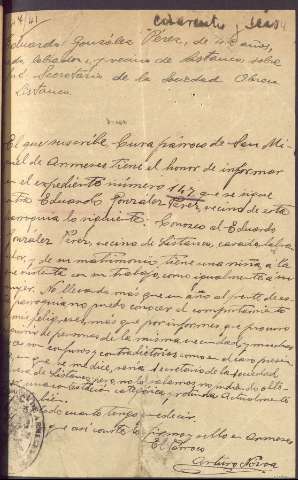 cuarenta y seis
Eduardo González Pérez, de 42 años,
labrador, y vecino de Listanco sobre
Secretario de la Sociedad Obrera
Listanco
El que suscribe Cura párroco de San Mi-
guel de Armeses tiene el honor de informar
en el expediente número 147 que se sigue
contra Eduardo González Pérez, vecino de esta
parroquia lo siguiente: Conozco al Eduardo
González Pérez, vecino de Listanco, casado, labra-
dor, y de su matrimonio tiene una niña, a la
que sustenta con su trabajo, como igualmente a su
mujer. No llevando más que un año al frente de es-
ta parroquia no puedo conocer el comportamiento
de mis feligreses, más que por informes que procuro
de personas de la misma vecindad, y muchas
veces confusos y contradictorios como en el caso presen-
te que se me dice, sería Secretario de la Sociedad
de Listanco, pero no lo sabemos, no pude de ello
una contestación categórica y rotunda. Actualmente
bien.
Es todo cuanto tengo que decir.
que así conste lo firmo y sello en Armeses
El Párroco
Arturo Novoa